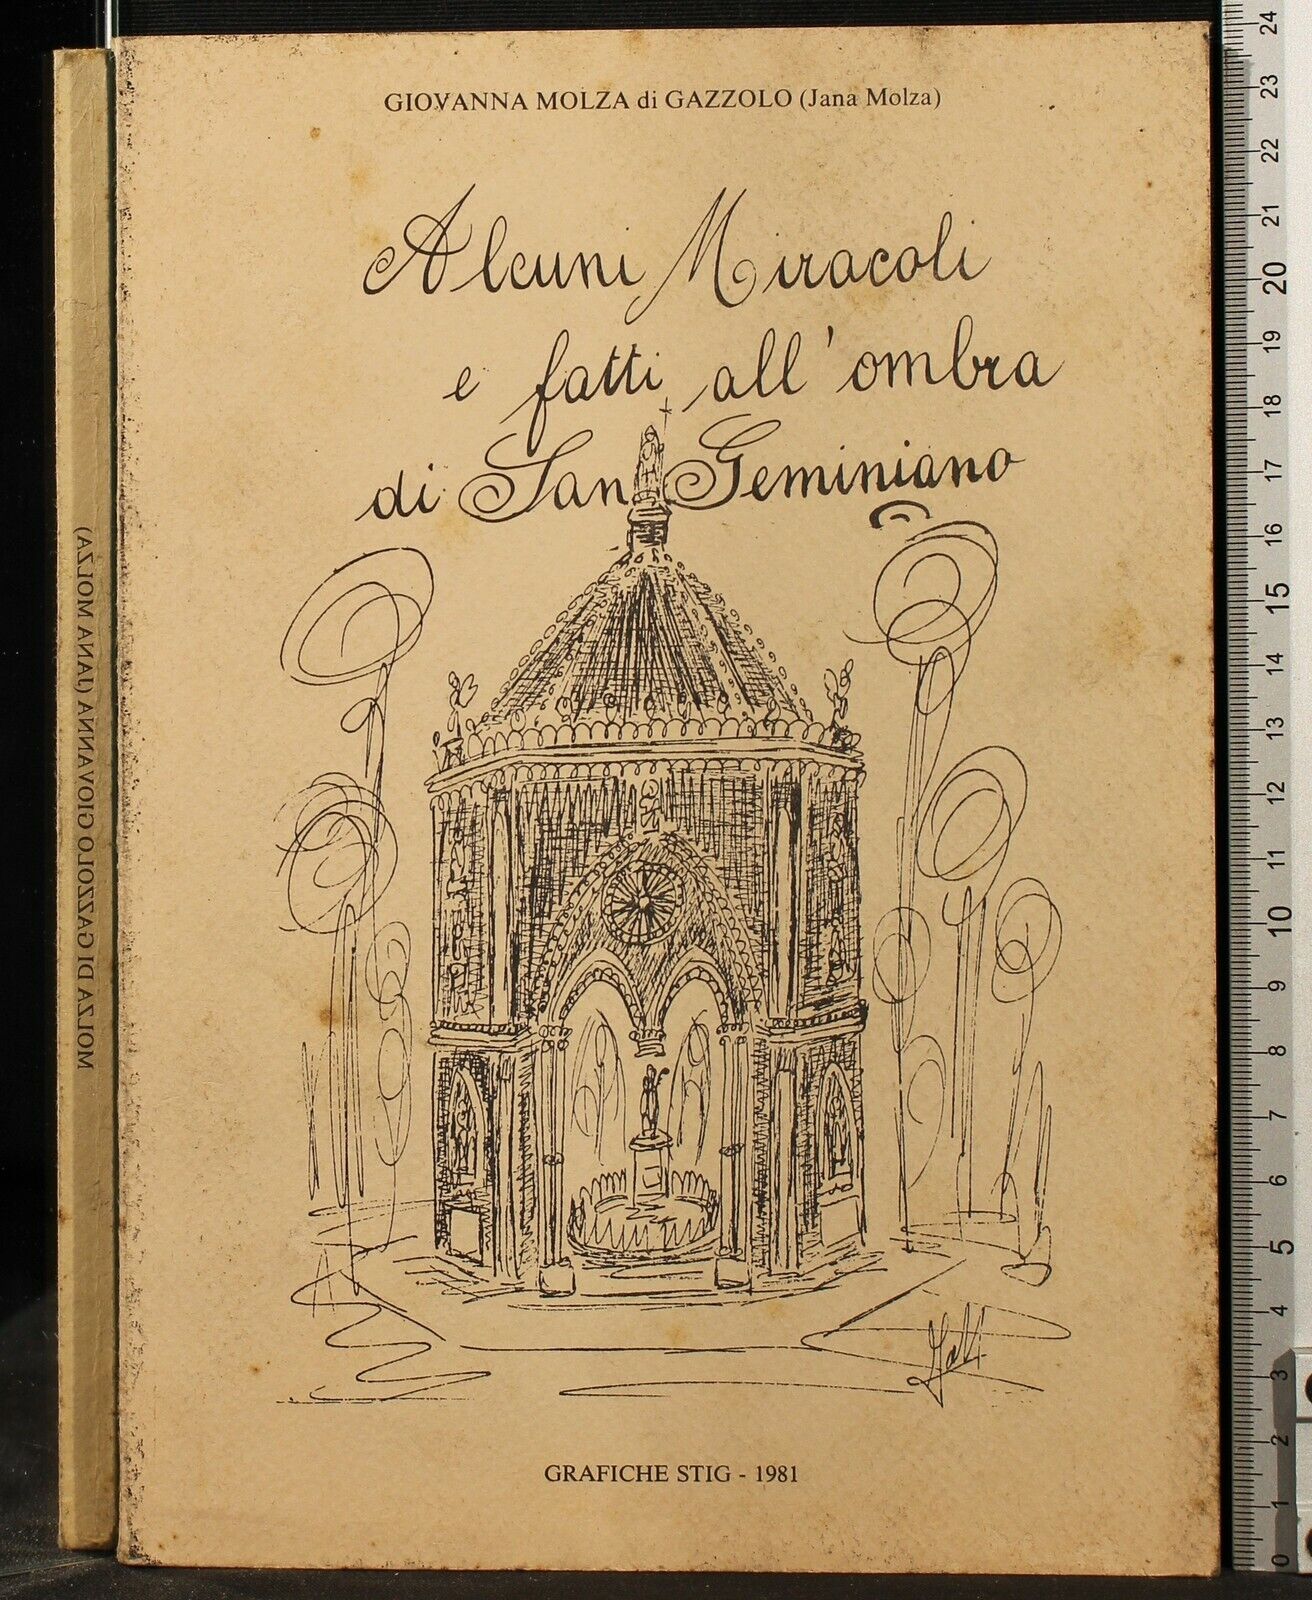 GIOVANNA MOLZA di GAZZOLO (Jana Molza)
Alcuni Miracoli
e fatti all'ombra
di San Geminiano
GRAFICHE STIG - 1981
MOLZA DI GAZZOLO GIOVANNA (JANA MOLZA)
24
23
22
21
20
19
18
17
16
15
14
13
12
11
10
9
8
7
6
5
4
3
2
1
0